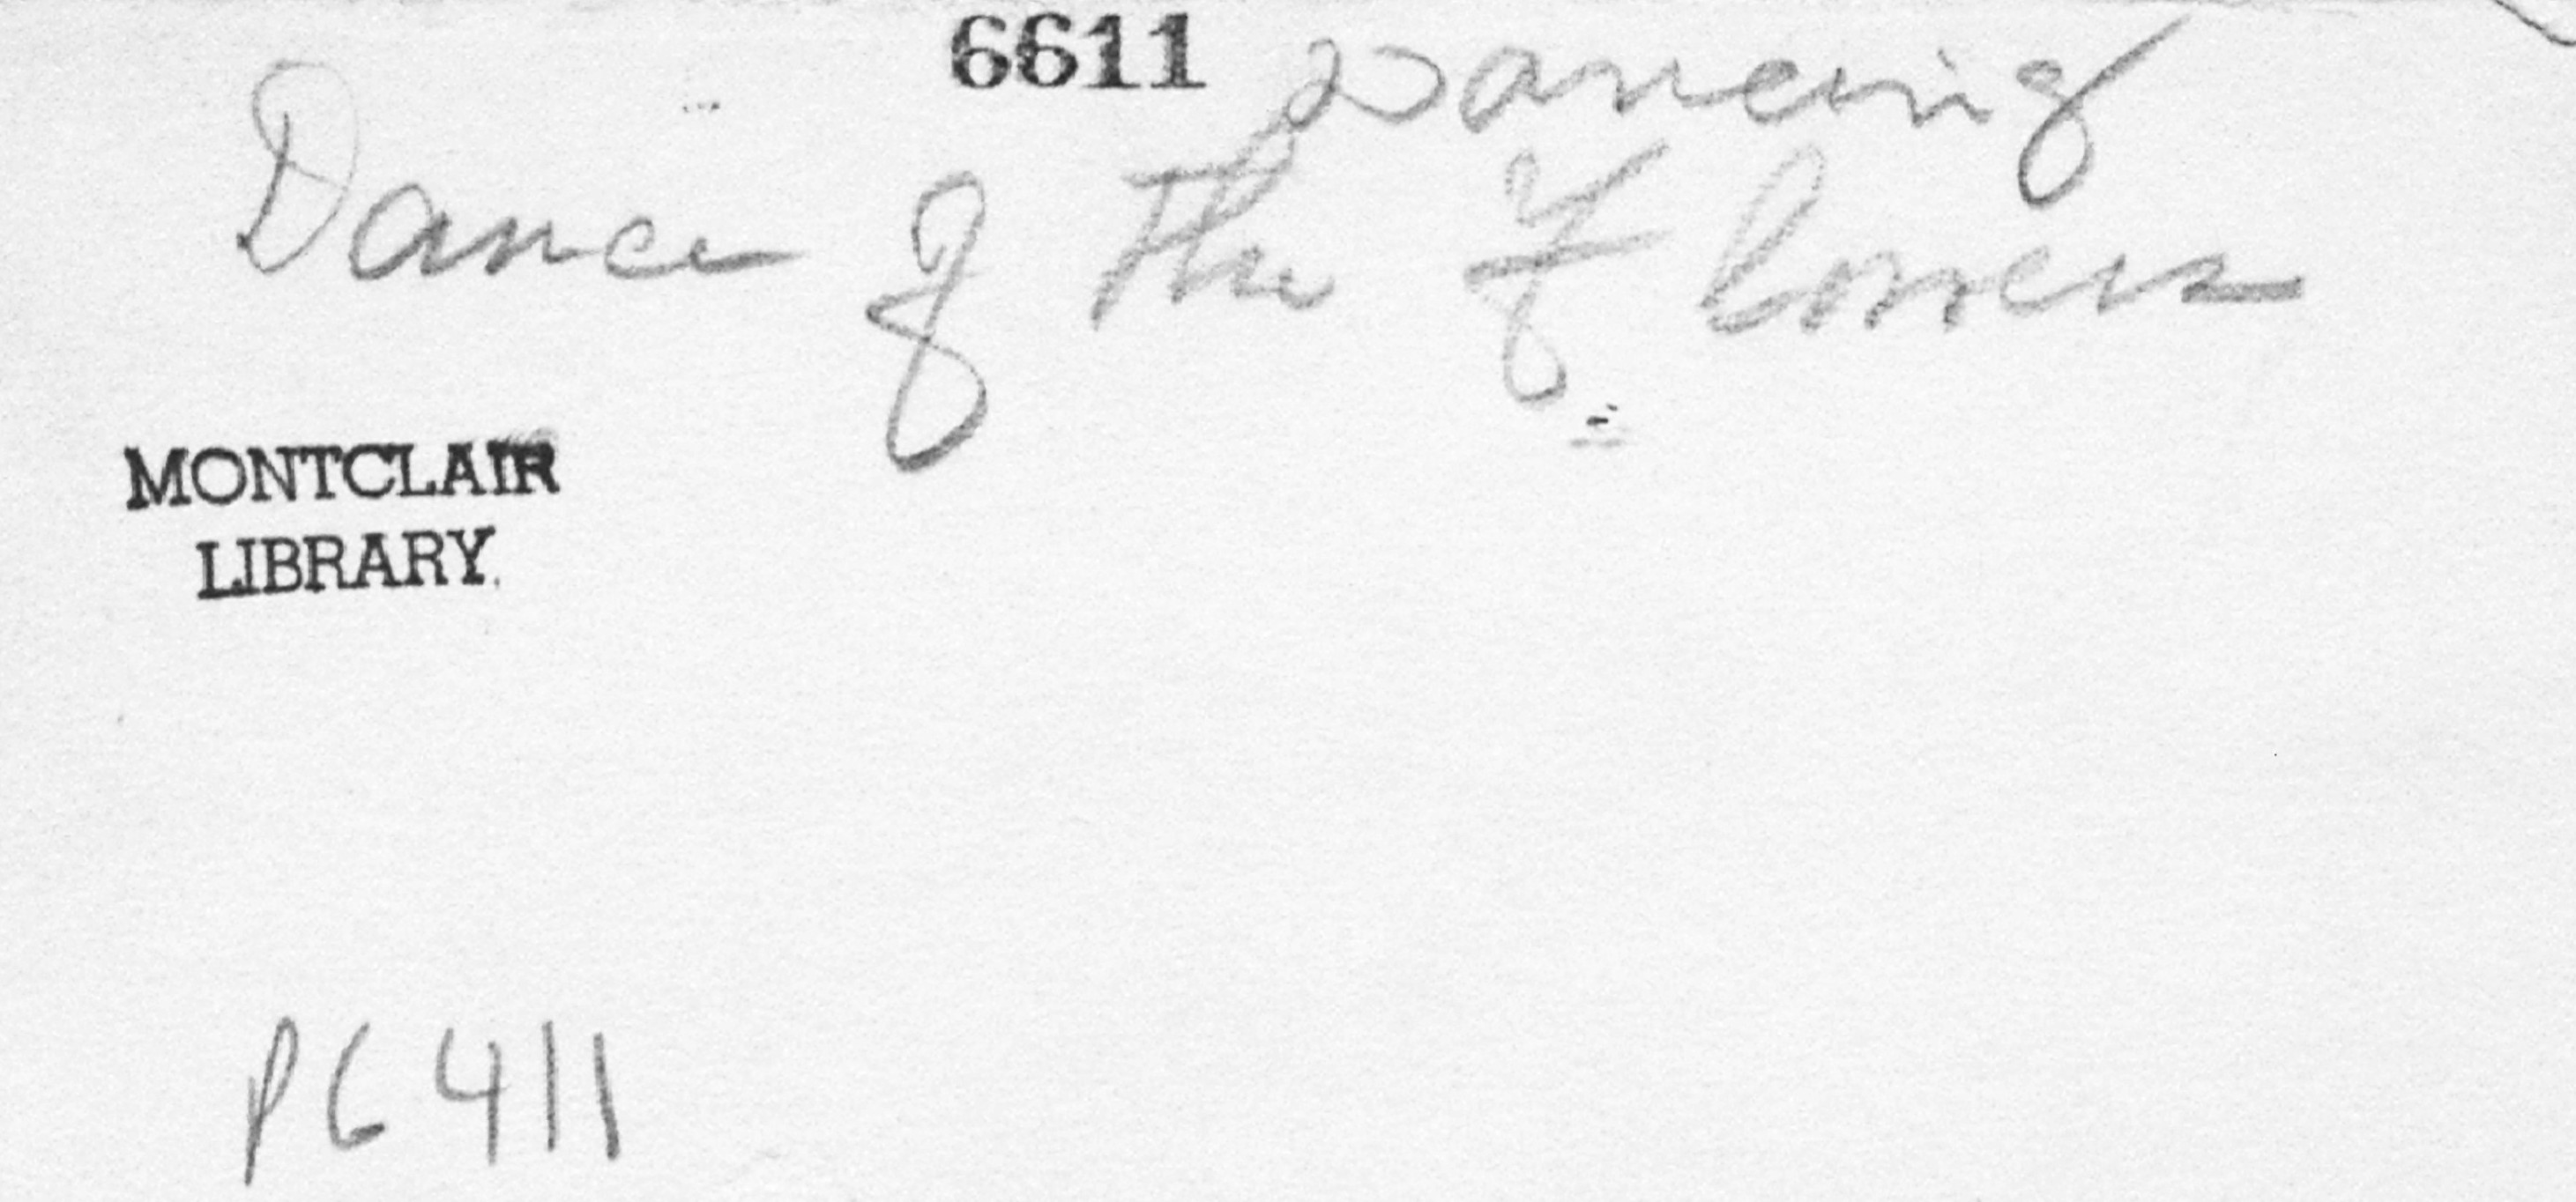 6611 Dancing
Dance of the Flowers
MONTCLAIR
LIBRARY
P6411